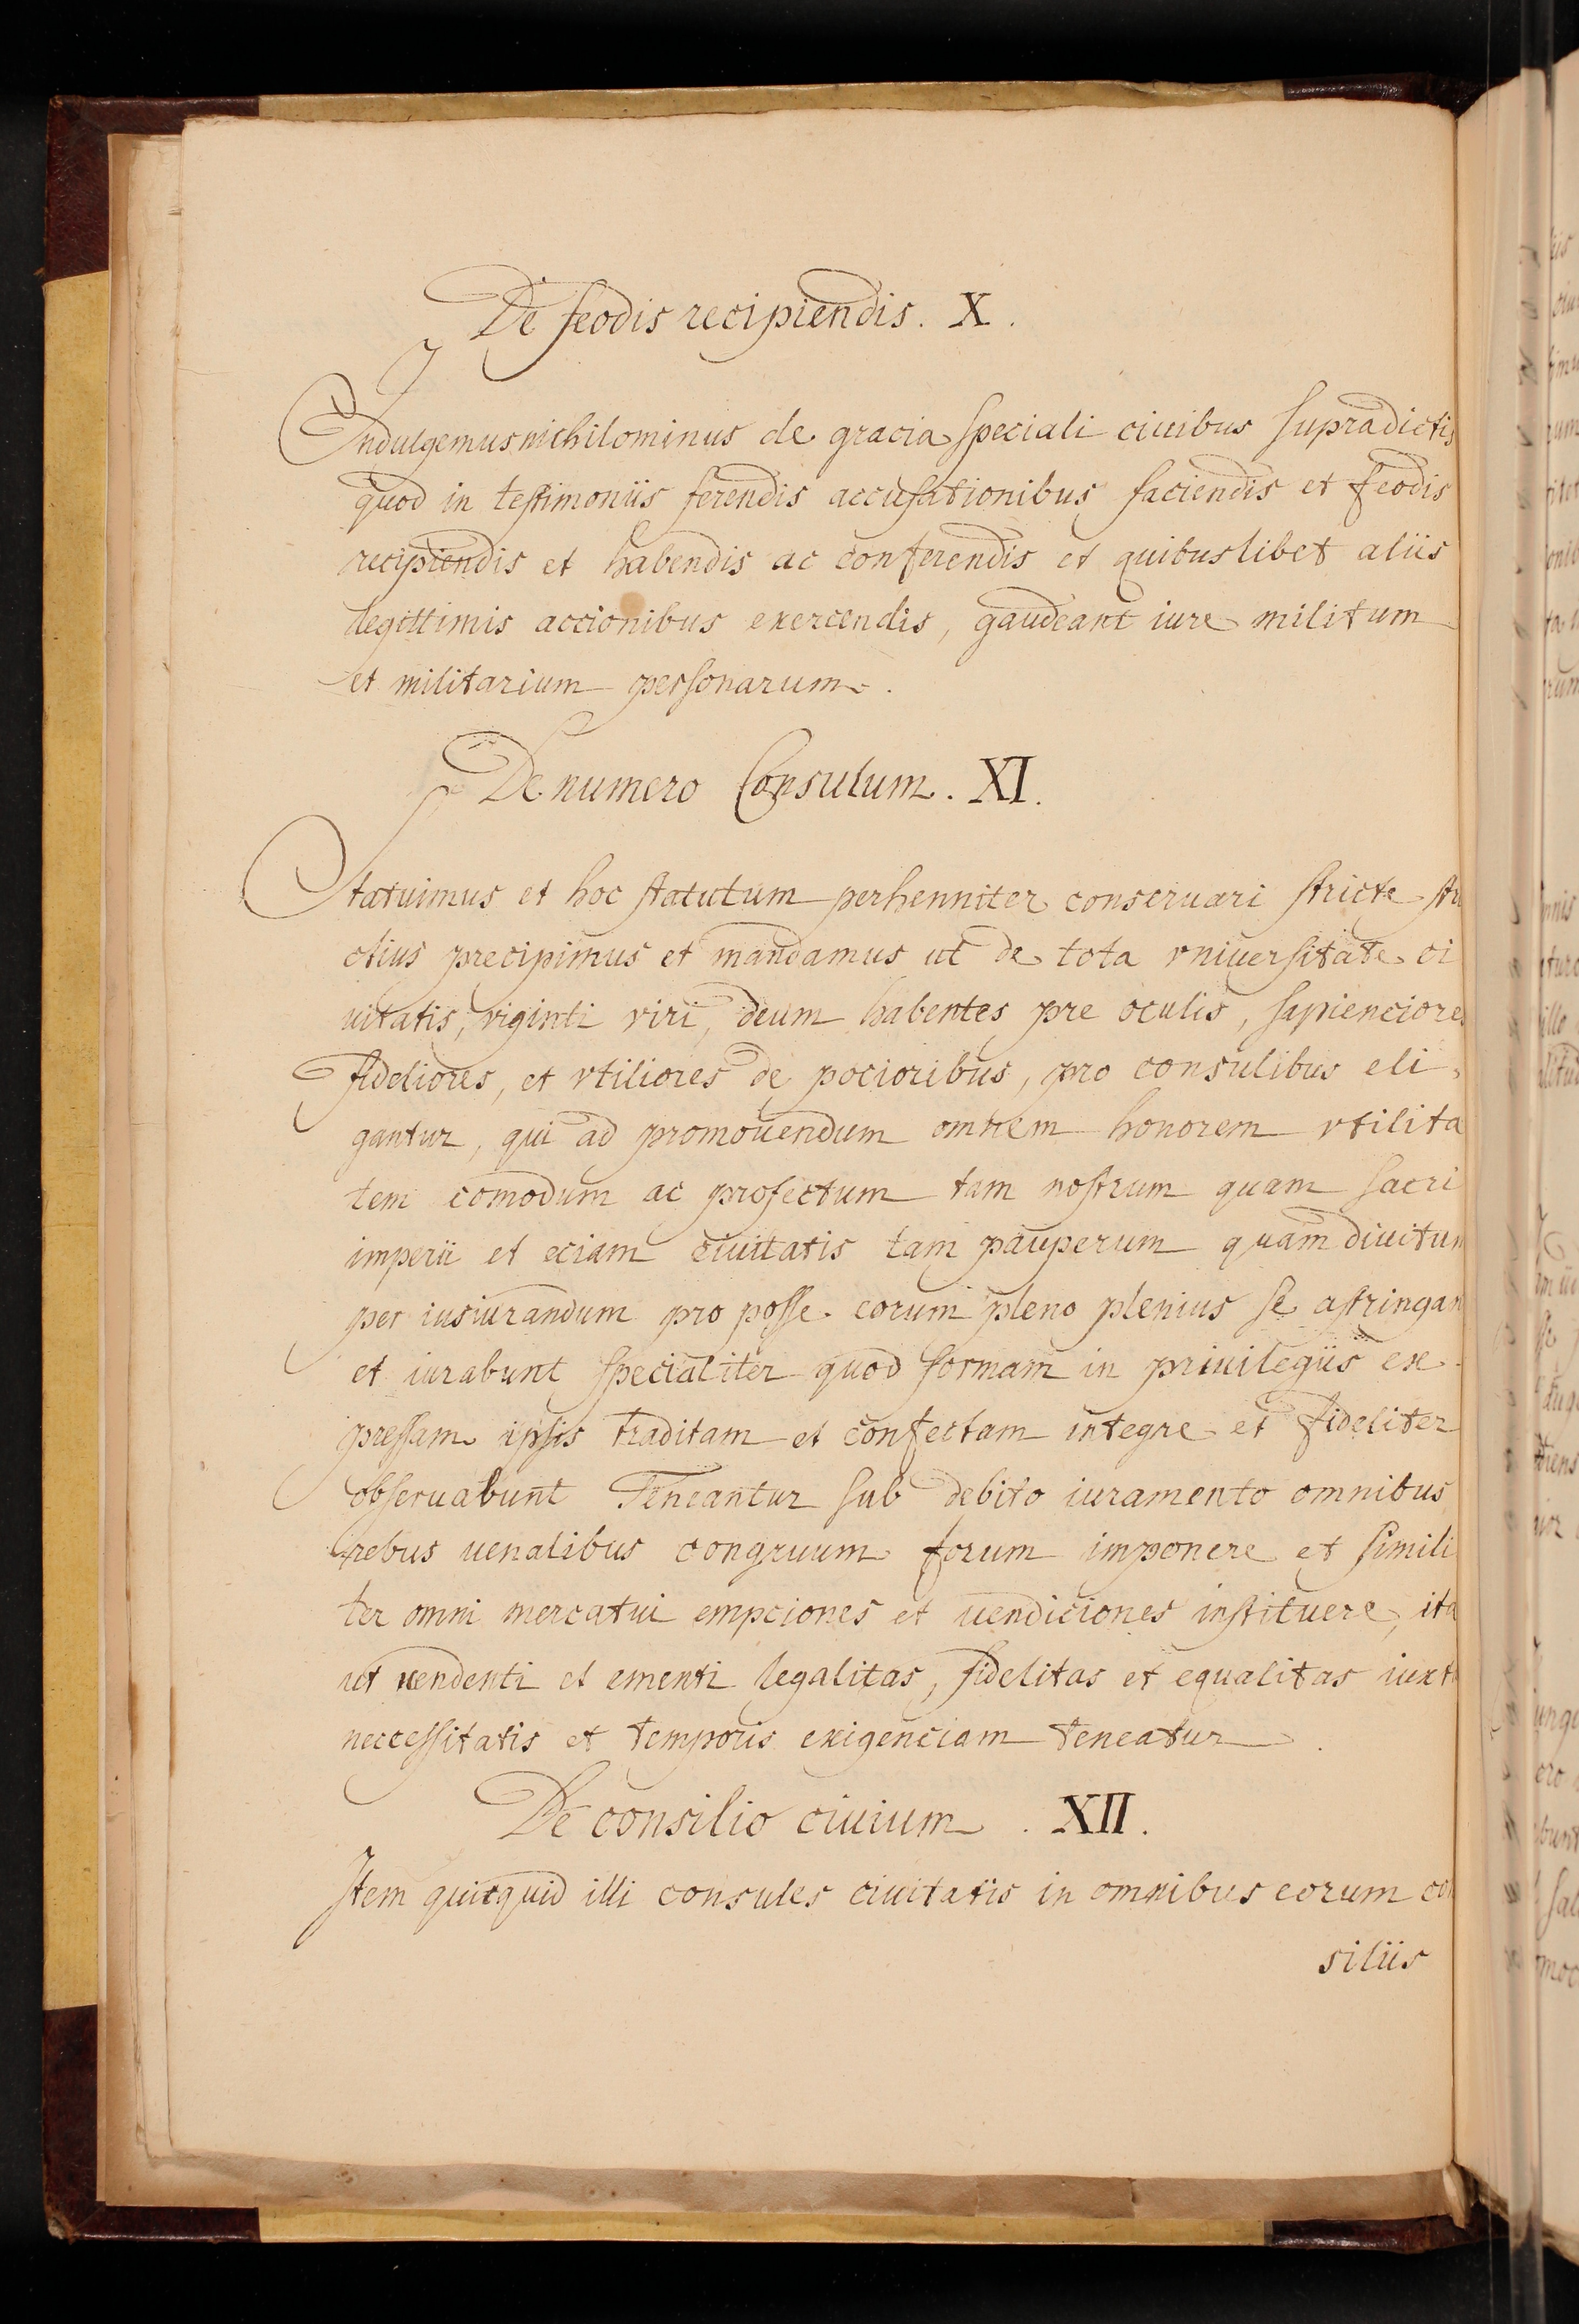 De feodis recipiendis. X.
Indulgemus nichilominus de gracia speciali ciuibus supradictis
quod in testimoniis ferendis accusationibus faciendis et feodis
recipiendis et habendis ac conferendis et quibuslibet aliis
legittimis accionibus exercendis, gaudeant iure militum
et militarium personarum.
De numero Consulum. XI.
Statuimus et hoc statutum perhenniter conseruari stricte stri
ctius precipimus et mandamus ut de tota vniuersitate ci
uitatis, viginti viri, deum habentes pre oculis, sapienciores
fideliores, et vtiliores de pocioribus, pro consulibus eli,
gantur, qui ad promouendum omnem honorem vtilita
tem comodum ac profectum tam nostrum quam sacri
imperii et eciam ciuitatis tam pauperum quam diuitum
per iusiurandum pro posse eorum pleno plenius se astringan
et iurabunt specialiter quod formam in priuilegiis ex
pressam ipsis traditam et confectam integre et fideliter
obseruabunt Teneantur sub debito iuramento omnibus
rebus uenalibus congruum forum imponere et simili
ter omni mercatui empciones et uendiciones instituere, ita
ut vendenti et ementi legalitas, fidelitas et equalitas iuxta
neccessitatis et temporis exigenciam teneatur.
De consilio ciuium. XII.
Item quicquid illi consules ciuitatis in omnibus eorum con
siliis